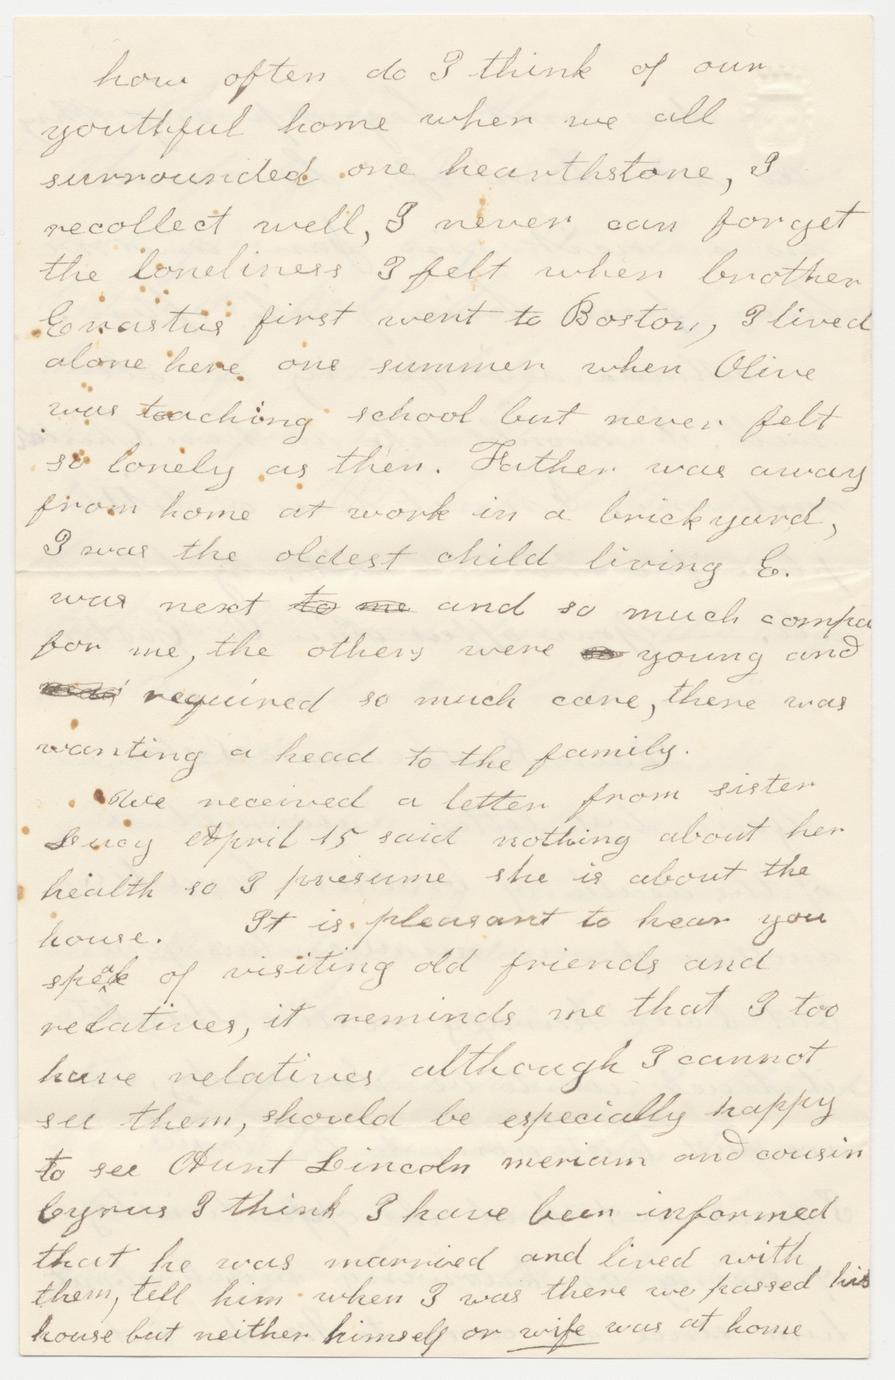 how often do I think of our
youthful home when we all
surrounded one hearthstone, I
recollect well, I never can forget
the loneliness I felt when brother
Erastus first went to Boston, I lived
alone here one summer when Olive
was teaching school but never felt
so lonely as then. Father was away
from home at work in a brickyard,
I was the oldest child living E.
was next to me and so much compa
for me, the others were so young and
required so much care, there was
wanting a head to the family.
We received a letter from sister
Lucy April 15 said nothing about her
health so I presume she is about the
house. It is pleasant to hear you
speak of visiting old friends and
relatives, it reminds me that I too
have relatives although I cannot
see them, should be especially happy
to see Aunt Lincoln meriam and cousin
Cyrus I think I have been informed
that he was married and lived with
them, tell him when I was there we passed his
house but neither himself or wife was at home